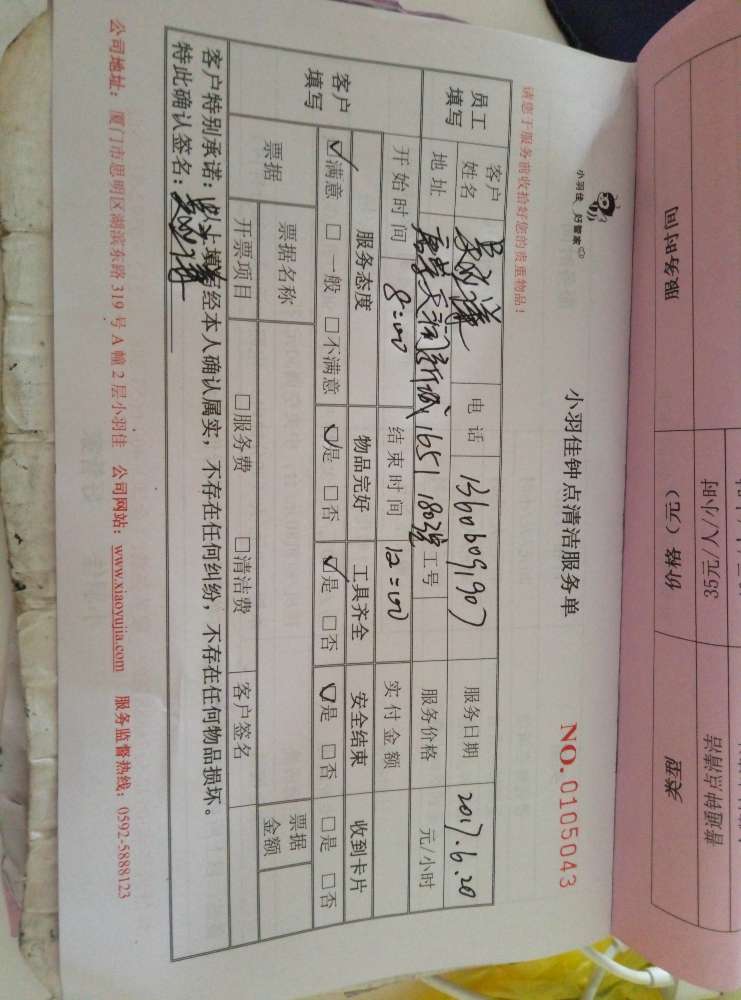 小羽佳 好管家
小羽佳钟点清洁服务单
NO.0105043
请您于服务前收拾好您的贵重物品！
员工填写 客户姓名 电话 13606091907 服务日期 2017.6.20
地址 天润新城 1651 1803 工号 服务价格 元/小时
开始时间 8:00 结束时间 12:00 实付金额
客户填写 服务态度 物品完好 工具齐全 安全结束 收到卡片
☑满意 □一般 □不满意 ☑是 □否 ☑是 □否 ☑是 □否 □是 □否
票据 票据名称 票据金额
开票项目 □服务费 □清洁费 客户签名
客户特别承诺：以上填写经本人确认属实，不存在任何纠纷，不存在任何物品损坏。
特此确认签名：
公司地址：厦门市思明区湖滨东路 319 号 A 幢 2 层小羽佳 公司网站：www.xiaoyujia.com 服务监督热线：0592-5888123
服务时间 价格（元） 类型
35元/人/小时 普通钟点清洁